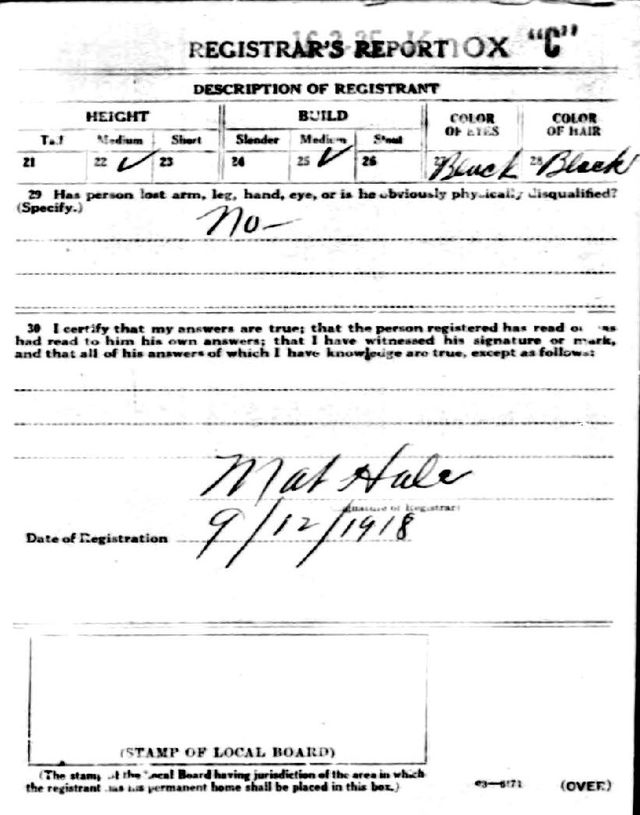 16-2-25 Knox "C"
REGISTRAR'S REPORT
DESCRIPTION OF REGISTRANT
HEIGHT BUILD COLOR OF EYES COLOR OF HAIR
Tall Medium Short Slender Medium Stout
21 22 ✓ 23 24 25 ✓ 26 27 Black 28 Black
29 Has person lost arm, leg, hand, eye, or is he obviously physically disqualified?
(Specify.) No—
30 I certify that my answers are true; that the person registered has read or has
had read to him his own answers; that I have witnessed his signature or mark,
and that all of his answers of which I have knowledge are true, except as follows:
Mat Hale
(Signature of Registrar)
Date of Registration 9/12/1918
(STAMP OF LOCAL BOARD)
(The stamp of the Local Board having jurisdiction of the area in which
the registrant has his permanent home shall be placed in this box.)
03—6171 (OVER)